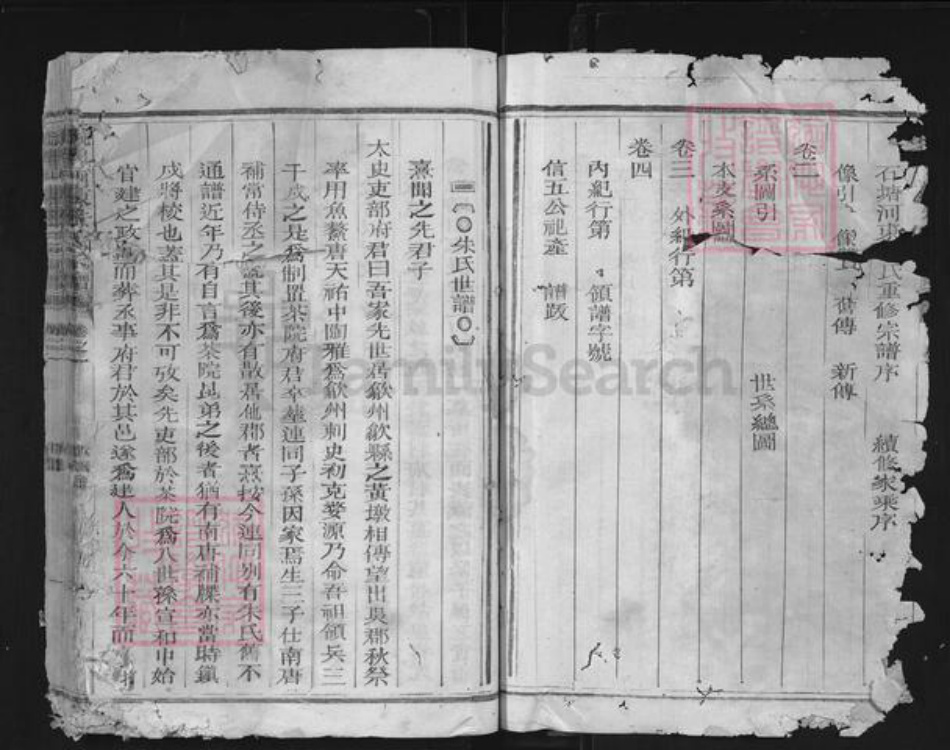 石塘河東 氏重修宗譜序 續修家乘序
像引 像 舊傳 新傳
卷二
系圖引 世系總圖
本支系圖
卷三 外紀行第
卷四
內紀行第 領譜字號
信五公祀產 譜跋
朱氏世譜
熹聞之先君子
太史吏部府君曰吾家先世居歙州歙縣之黃墩相傳望出吳郡秋祭
率用魚鱉唐天祐中陶雅爲歙州刺史初克婺源乃命吾祖領兵三
千戍之是爲制置茶院府君卒葬連同子孫因家焉生三子仕南唐
補常侍丞之 其後亦有散居他郡者熹按今連同別有朱氏舊不
通譜近年乃有自言爲茶院昆弟之後者猶有南唐補牒亦當時鎮
戍將校也蓋其是非不可攷矣先吏部於茶院爲八世孫宣和中始
官建之政 而葬丞事府君於其邑遂爲建人於今六十年而
FamilySearch